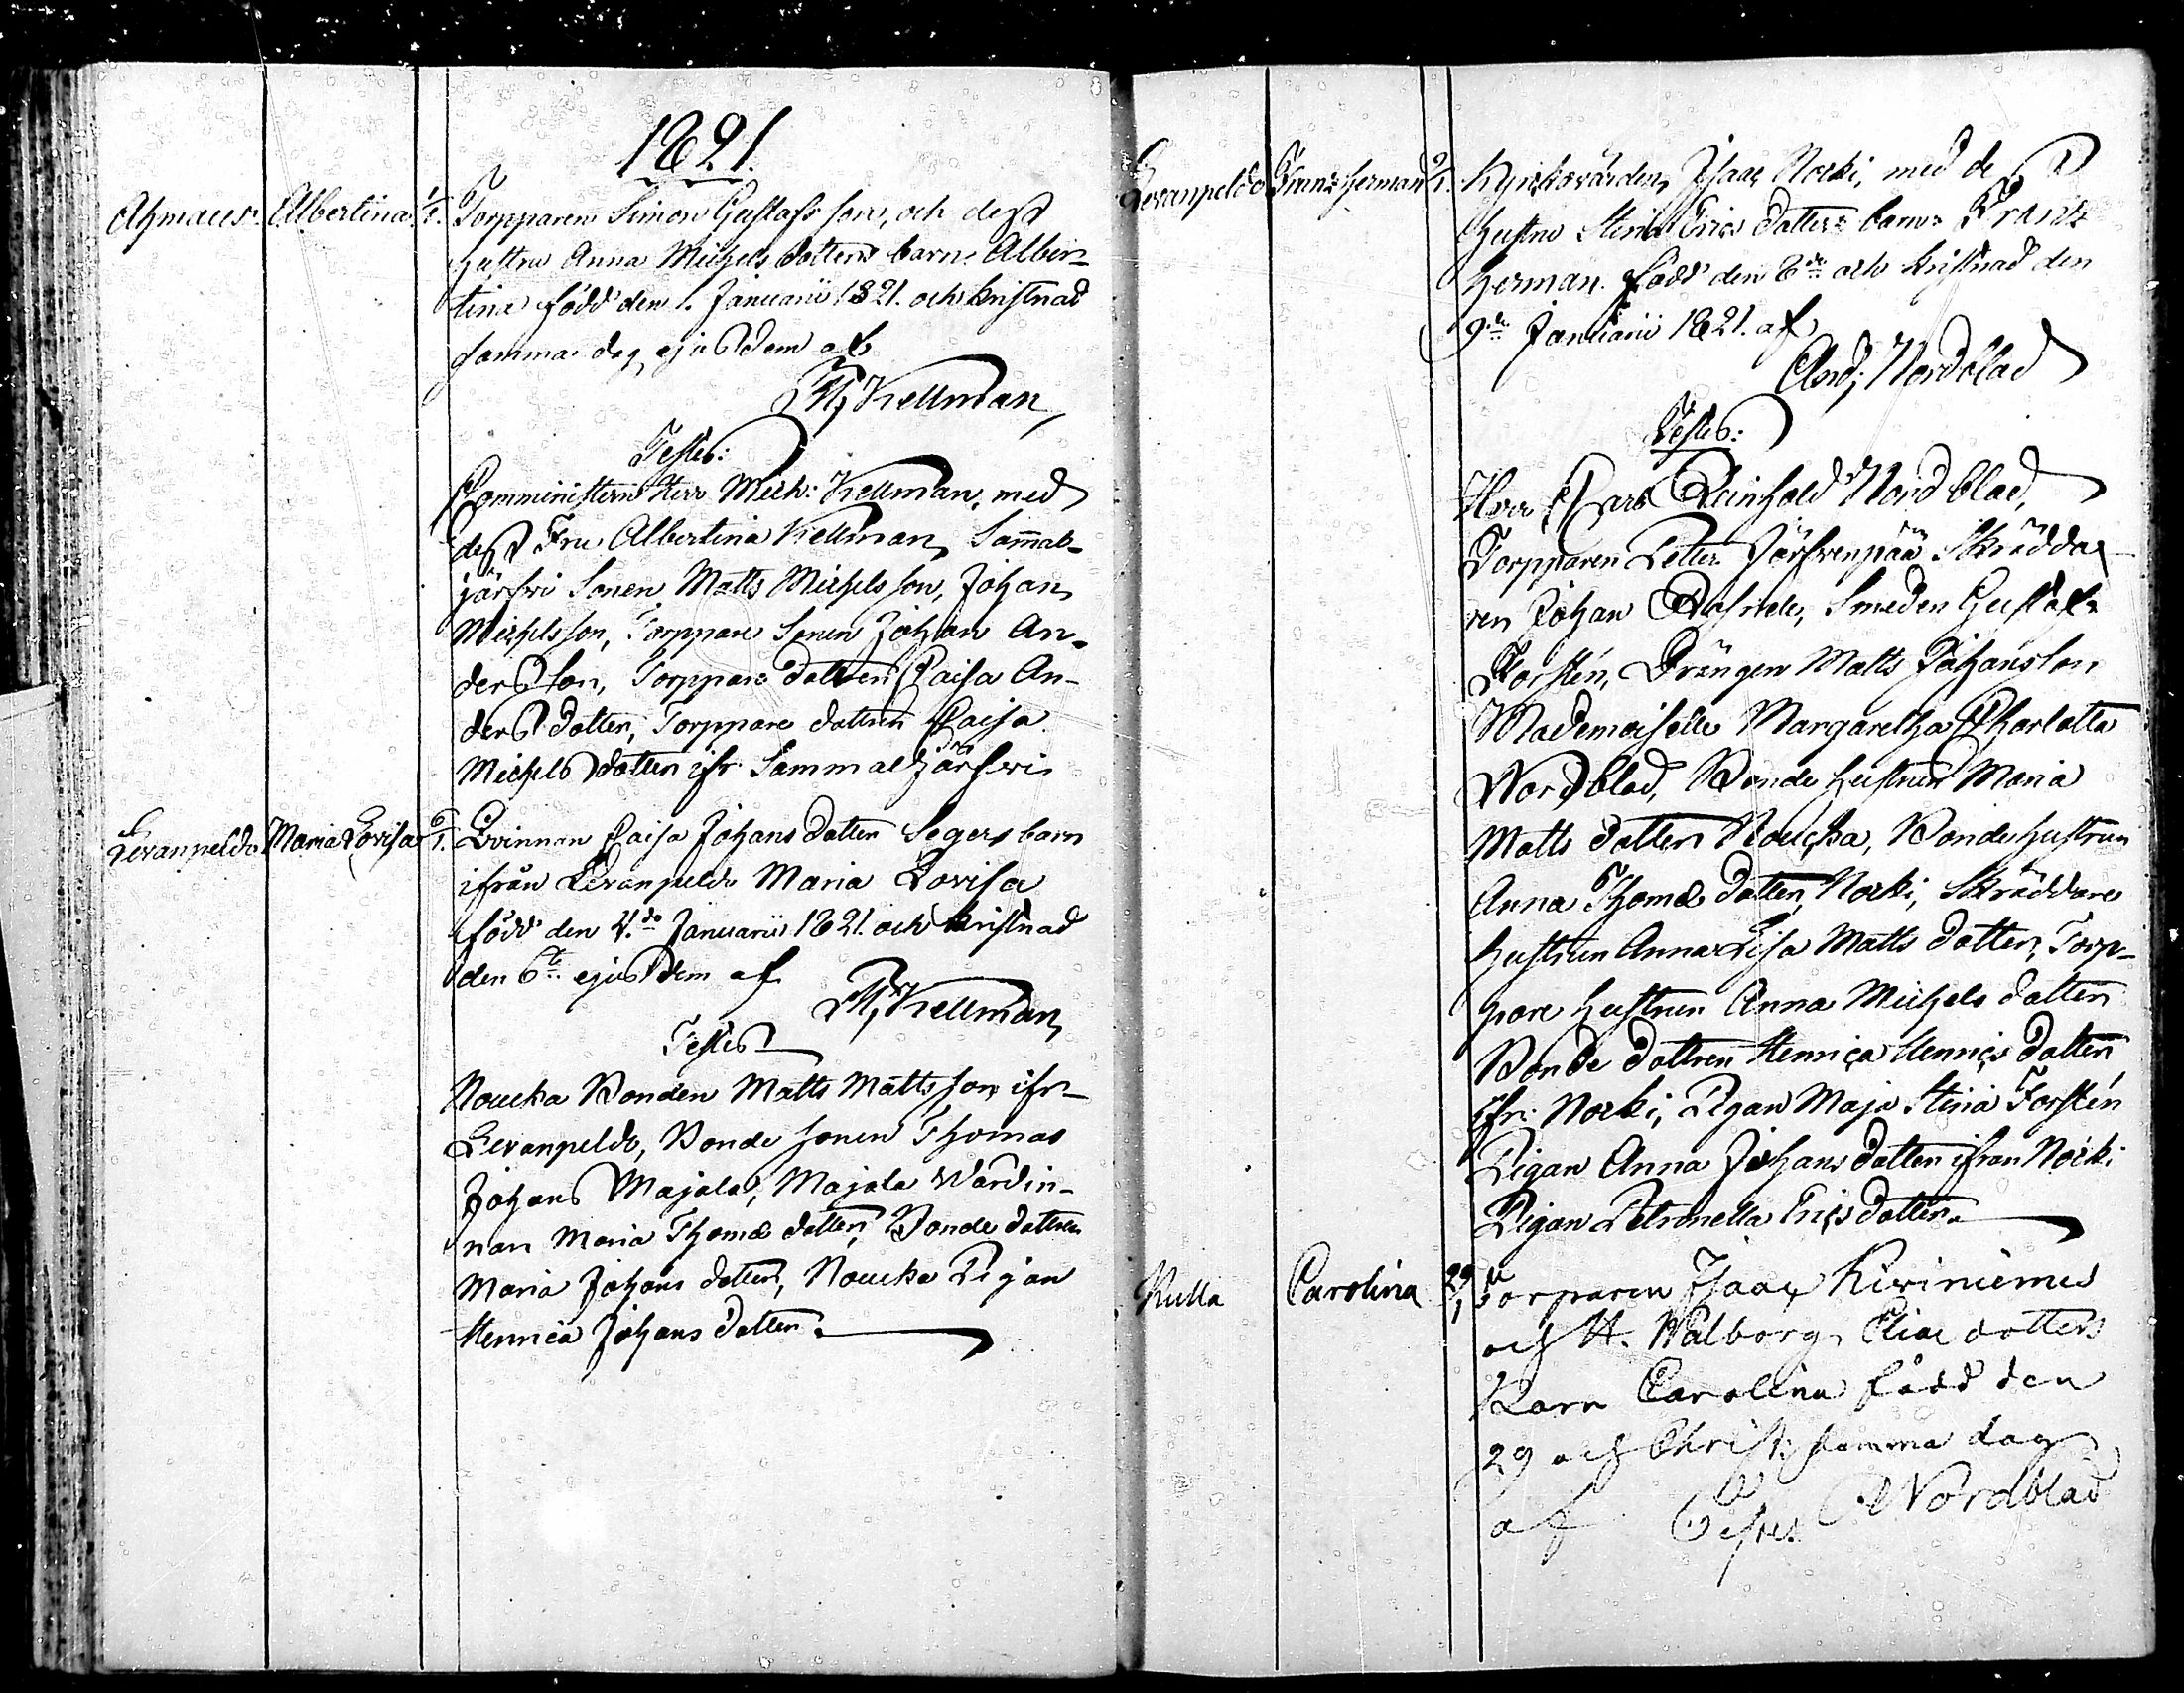 1821.
Ahmaus. Albertina 1/1. Torpparen Simon Gustafs son, och dess
hustru Anna Michels dotters barn Alber-
tina född den 1. Januarii 1821. och kristnad
samma dag ejusdem af
M, Kellman
Testes:
Comministern Herr Mich: Kellman, med
dess Fru Albertina Kellman, Sammal-
järfwi Sonen Matts Michelsson, Johan
Michelsson, Torppare Sonen Johan An-
ders son, Torppare dottren Caisa An-
ders dotter, Torppare dottren Caisa
Michels dotter ifr. Sammaljärfwi
Levanpeldo Maria Lovisa 6/1. Qvinnan Caisa Johans dotter Segers barn
ifrån Levanpeldo Maria Lovisa
född den 4.de Januarii 1821. och kristnad
den 6te ejusdem af
M, Kellman,
Testes
Noucka Bonden Matts Mattsson ifr-
Levanpeldo, Bonde sonen Thomas
Johans Majala, Majala Wärdin-
nan Maria Thomæ dotter, Bonde dottren
Maria Johans dotter, Noucka Pigan
Henrica Johans dotter.
Levanpeldo Frans Herman 9/1. Kyrkovärden Isaac Nocki, med de
hustru Stina Erics dotters barn Frants
Herman född den 8de och kristnad den
9de Januarii 1821. af
And; Nordblad
Testes:
Herr Carl Reinhold Nordblad,
Torpparen Petter Järfvenpää Skrädda-
ren Johan, Smeden Gustaf
Forstén, Drängen Matts Johansson
Mademoiselle Margaretha Charlotta
Nordblad, Bonde hustrun Maria
Matts dotter Noucka, Bonde hustrun
Anna Thomæ dotter, Nocki, Skräddare
hustrun Anna Lisa Matts dotter, Torp-
pare hustrun Anna Michels dotter
Bonde dottren Henrica Henrics dotter
ifr. Nocki, Pigan Maja Stina Forstén
Pigan Anna Johans dotter ifrån Nocki
Pigan Petronella Erics dotter.
Kulla Carolina 29/1 Torparen Isaac Kiviniemus
och H. Walborg Eliæ dotters
Barn Carolina född den
29 och Christ; samma dag
af Nordblad
Testes